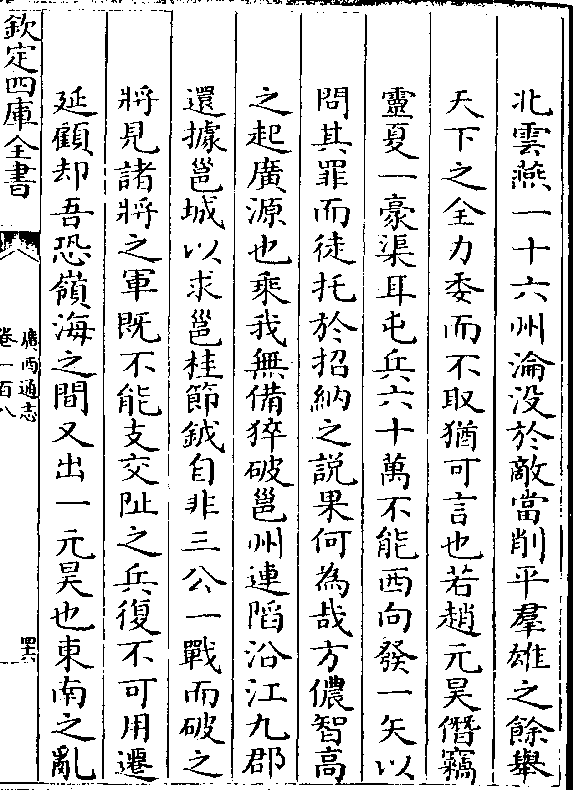 北雲燕一十六州淪没於敵當削平羣雄之餘舉
天下之全力委而不取猶可言也若趙元昊僭竊
靈夏一豪渠耳屯兵六十萬不能西向發一矢以
問其罪而徒托於招納之説果何為哉方儂智高
之起廣源也乘我無備猝破邕州連䧟沿江九郡
還據邕城以求邕桂節鉞自非三公一戰而破之
將見諸將之軍既不能支交阯之兵復不可用遷
延顧却吾恐嶺海之間又出一元昊也東南之亂
欽定四庫全書
廣西通志
卷一百八
四六